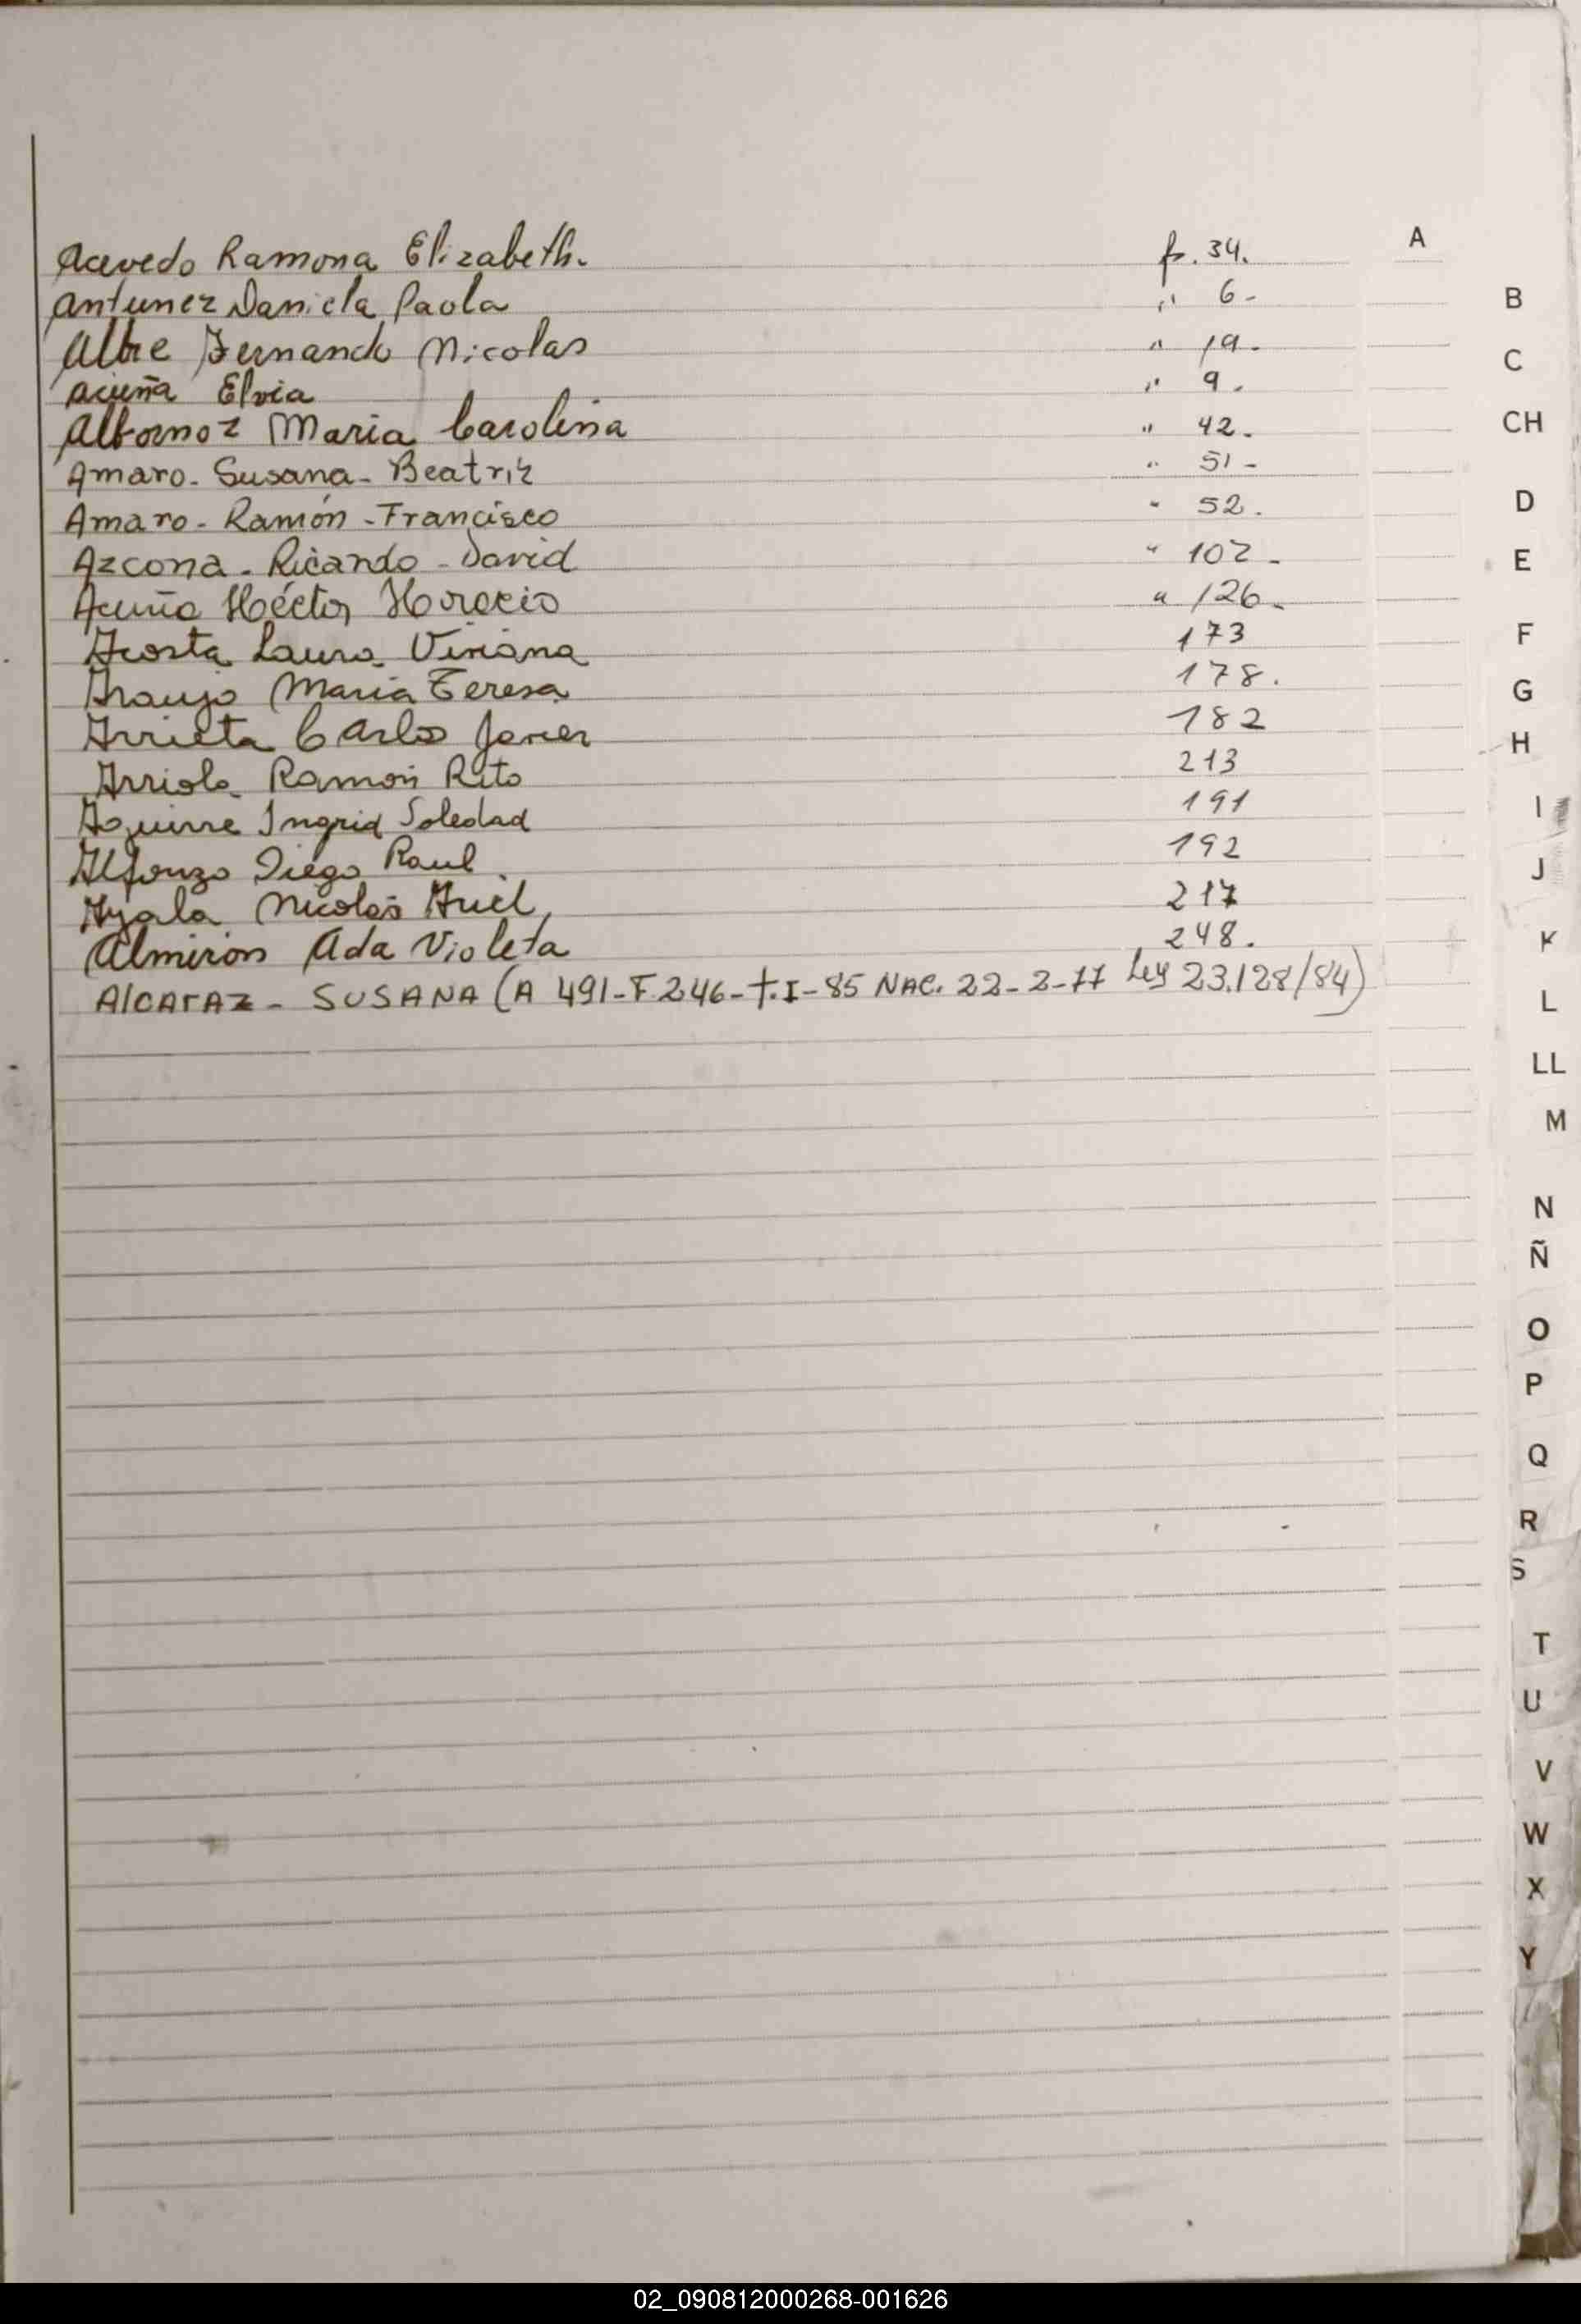 Acevedo Ramona Elizabeth. fs. 34. A
Antunez Daniela Paola " 6-
Albre Fernando Nicolas " 19.
Acuña Elvia " 9.
Albornoz Maria Carolina " 42.
Amaro- Susana- Beatriz " 51-
Amaro- Ramón -Francisco " 52.
Azcona- Ricardo -David " 102-
Acuña Héctor Horacio " 126-
Acosta Laura Viviana 173
Araujo Maria Teresa 178.
Arrieta Carlos Javier 182
Arriola Ramón Rito 213
Aguirre Ingrid Soledad 191
Alfonzo Diego Raul 192
Ayala Nicolás Auel 217
Almiron Ada Violeta 248.
AlCArAz- SUSANA (A 491-F.246-t.I-85 NAC. 22-2-77 Ley 23.128/84)
B
C
CH
D
E
F
G
H
I
J
K
L
LL
M
N
Ñ
O
P
Q
R
S
T
U
V
W
X
Y
02_090812000268-001626